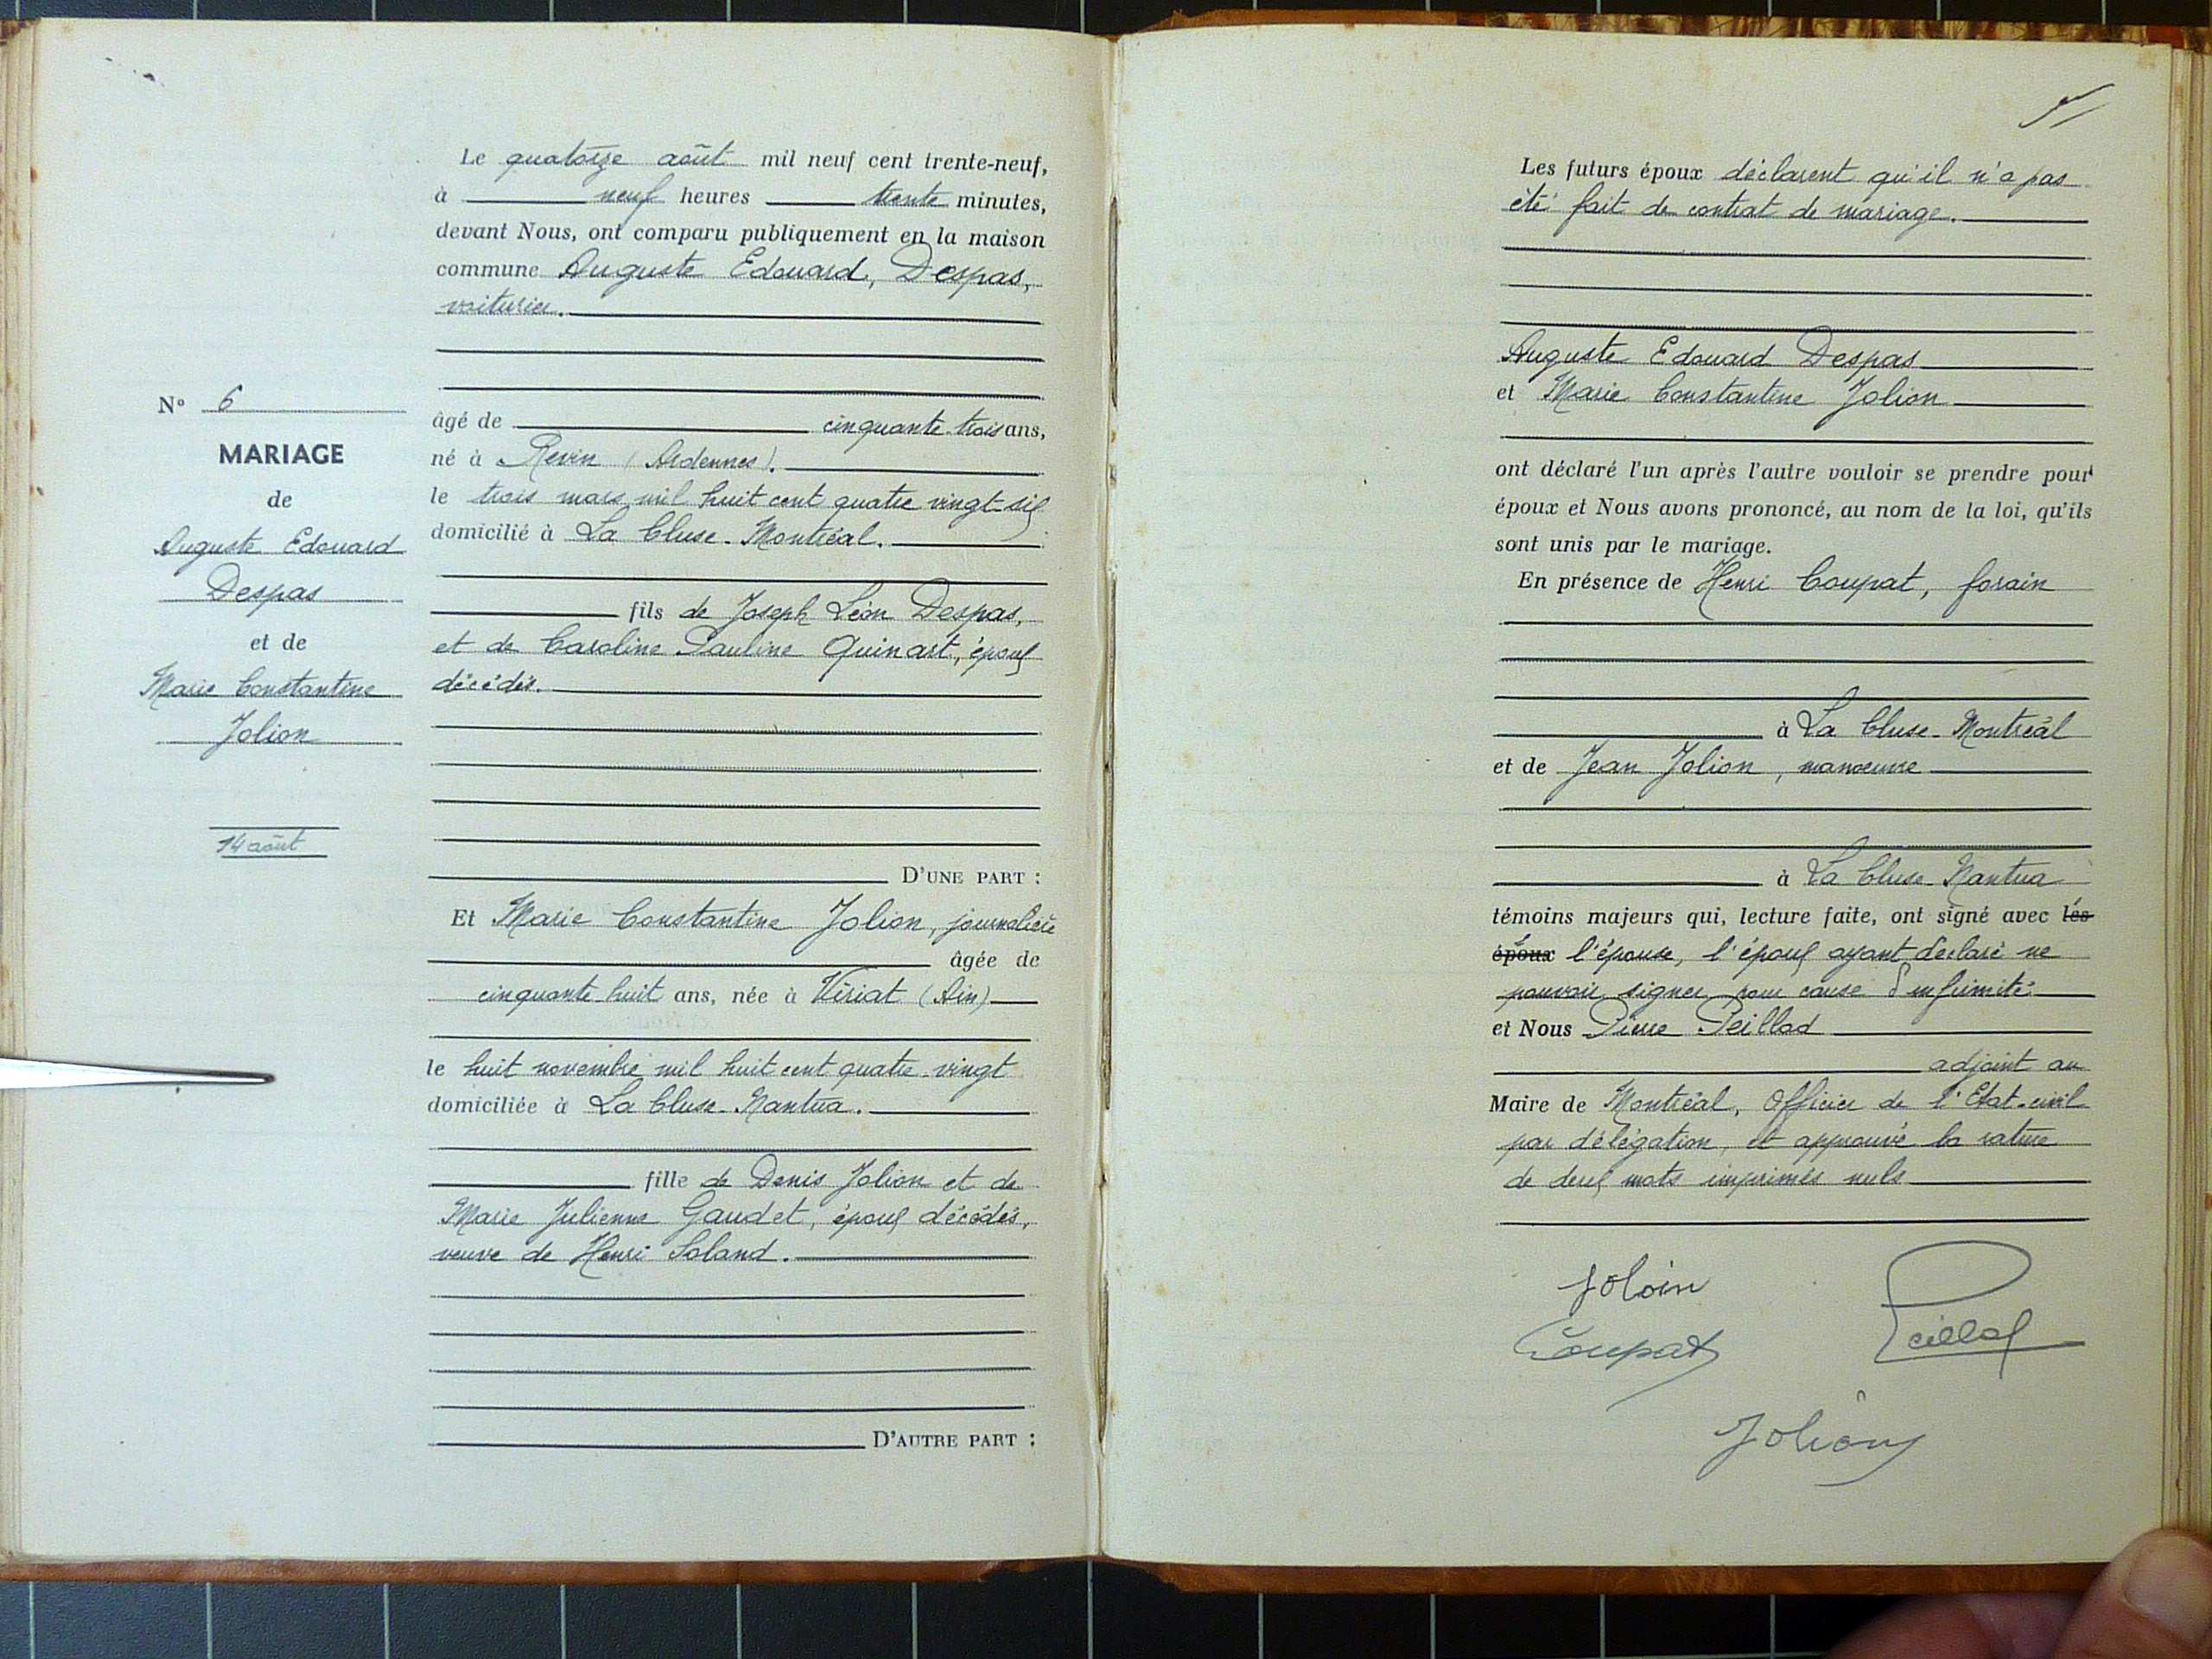 N° 6
MARIAGE
de
Auguste Edouard
Despas
et de
Marie Constantine
Jolion
14 août
Le quatorze août mil neuf cent trente-neuf,
à neuf heures trente minutes,
devant Nous, ont comparu publiquement en la maison
commune Auguste Edouard, Despas,
voiturier.
âgé de cinquante-trois ans,
né à Revin (Ardennes).
le trois mars mil huit cent quatre vingt-six
domicilié à La Cluse-Montréal.
fils de Joseph Léon Despas,
et de Caroline Pauline Quinart, époux
décédés.
D'UNE PART :
Et Marie Constantine Jolion, journalière
âgée de
cinquante-huit ans, née à Viriat (Ain)
le huit novembre mil huit cent quatre-vingt
domiciliée à La Cluse-Nantua.
fille de Denis Jolion et de
Marie Julienne Gaudet, époux décédés,
veuve de Henri Soland.
D'AUTRE PART :
Les futurs époux déclarent qu'il n'a pas
été fait de contrat de mariage.
Auguste Edouard Despas
et Marie Constantine Jolion
ont déclaré l'un après l'autre vouloir se prendre pour
époux et Nous avons prononcé, au nom de la loi, qu'ils
sont unis par le mariage.
En présence de Henri Coupat, forain
à La Cluse-Montréal
et de Jean Jolion, manœuvre
à La Cluse-Nantua
témoins majeurs qui, lecture faite, ont signé avec les
époux l'épouse, l'époux ayant déclaré ne
pouvoir signer pour cause d'infirmité
et Nous Pierre Peillod
adjoint au
Maire de Montréal, Officier de l'Etat-civil
par délégation, et approuvé la rature
de deux mots imprimés nuls
Joloin
Coupat
Peillod
Jolion